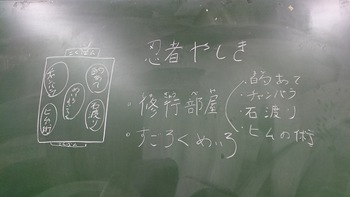 忍者やしき
・修行部屋
・すごろくめいろ
・的あて
・チャンバラ
・石渡り
・ヒムの術
的あて
チャンバラ
石渡り
ヒムの術